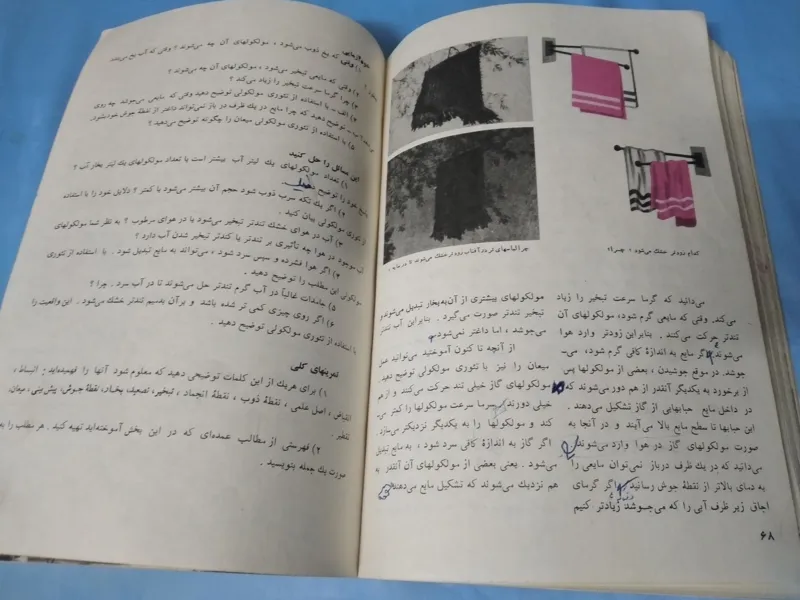 کدام زودتر خشک می‌شود ، چـــرا؟
چرا لباسهای تر در آفتاب زودتر خشک می‌شوند تا در سایه ؟
می‌دانید که گرما سرعت تبخیر را زیاد
می‌کند. وقتی که مایعی گرم شود، مولکولهای آن
تندتر حرکت می‌کنند . بنابراین زودتر وارد هوا
می‌شوند اگر مایع به اندازهٔ کافی گرم شود، می‌ــ
جوشد. در موقع جوشیدن ، بعضی از مولکولها پس
از برخورد به یکدیگر آنقدر از هم دور می‌شوند که
در داخل مایع حبابهایی از گاز تشکیل می‌دهند .
این حبابها تا سطح مایع بالا می‌آیند و در آنجا به
صورت مولکولهای گاز در هوا وارد می‌شوند
می‌دانید که در یک ظرف درباز نمی‌توان مایعی را
به دمای بالاتر از نقطهٔ جوش رسانید. اگر گرمای
اجاق زیر ظرف آبی را که می‌جوشد زیادتر کنیم
مولکولهای بیشتری از آن به بخار تبدیل می‌شوند و
تبخیر تندتر صورت می‌گیرد . بنابراین آب تندتر
می‌جوشد ، اما داغتر نمی‌شود.
از آنچه تا کنون آموختید می‌توانید عمل
میعان را نیز با تئوری مولکولی توضیح دهید.
مولکولهای گاز خیلی تند حرکت می‌کنند و از هم
خیلی دورند. سرما سرعت مولکولها را کمتر می‌ــ
کند و مولکولها را به یکدیگر نزدیکتر می‌سازد.
اگر گاز به اندازهٔ کافی سرد شود ، به مایع تبدیل
می‌شود . یعنی بعضی از مولکولهای آن آنقدر به
هم نزدیک می‌شوند که تشکیل مایع می‌دهند
۶۸
خودآزمایی
۱) وقتی که یخ ذوب می‌شود ، مولکولهای آن چه می‌شوند ؟ وقتی که آب یخ می‌بندد،
۲) وقتی که مایعی تبخیر می‌شود ، مولکولهای آن چه می‌شوند ؟
۳) چرا گرما سرعت تبخیر را زیاد می‌کند ؟
۴) الف ــ با استفاده از تئوری مولکولی توضیح دهید وقتی که مایعی می‌جوشد چه روی
توضیح دهید که چرا مایع در یک ظرف در باز نمی‌تواند داغتر از نقطهٔ جوش خود بشود.
۵) با استفاده از تئوری مولکولی میعان را چگونه توضیح می‌دهید ؟
این مسائل را حل کنید
۱) تعداد مولکولهای یک لیتر آب بیشتر است یا تعداد مولکولهای یک لیتر بخار آب ؟
خود را توضیح دهید
۲) اگر یک تکه سرب ذوب شود حجم آن بیشتر می‌شود یا کمتر ؟ دلایل خود را با استفاده
از تئوری مولکولی بیان کنید .
۳) آب در هوای خشک تندتر تبخیر می‌شود یا در هوای مرطوب ؟ به نظر شما مولکولهای
آب موجود در هوا چه تأثیری بر تندتر یا کندتر تبخیر شدن آب دارد ؟
۴) اگر هوا فشرده و سپس سرد شود ، می‌تواند به مایع تبدیل شود . با استفاده از تئوری
مولکولی این مطلب را توضیح دهید .
۵) جامدات غالباً در آب گرم تندتر حل می‌شوند تا در آب سرد . چرا ؟
۶) اگر روی چیزی کمی تر شده باشد و برآن بدمیم تندتر خشک می‌شود . این واقعیت را
با استفاده از تئوری مولکولی توضیح دهید .
تمرینهای کلی
۱) برای هریک از این کلمات توضیحی دهید که معلوم شود آنها را فهمیده‌اید: انبساط ،
انقباض ، اصل علمی ، نقطهٔ ذوب ، نقطهٔ انجماد ، تبخیر، تصعید، بخار، نقطهٔ جوش، پیش‌بینی، میعان،
تقطیر .
۲) فهرستی از مطالب عمده‌ای که در این بخش آموخته‌اید تهیه کنید . هر مطلب را به
صورت یک جمله بنویسید .